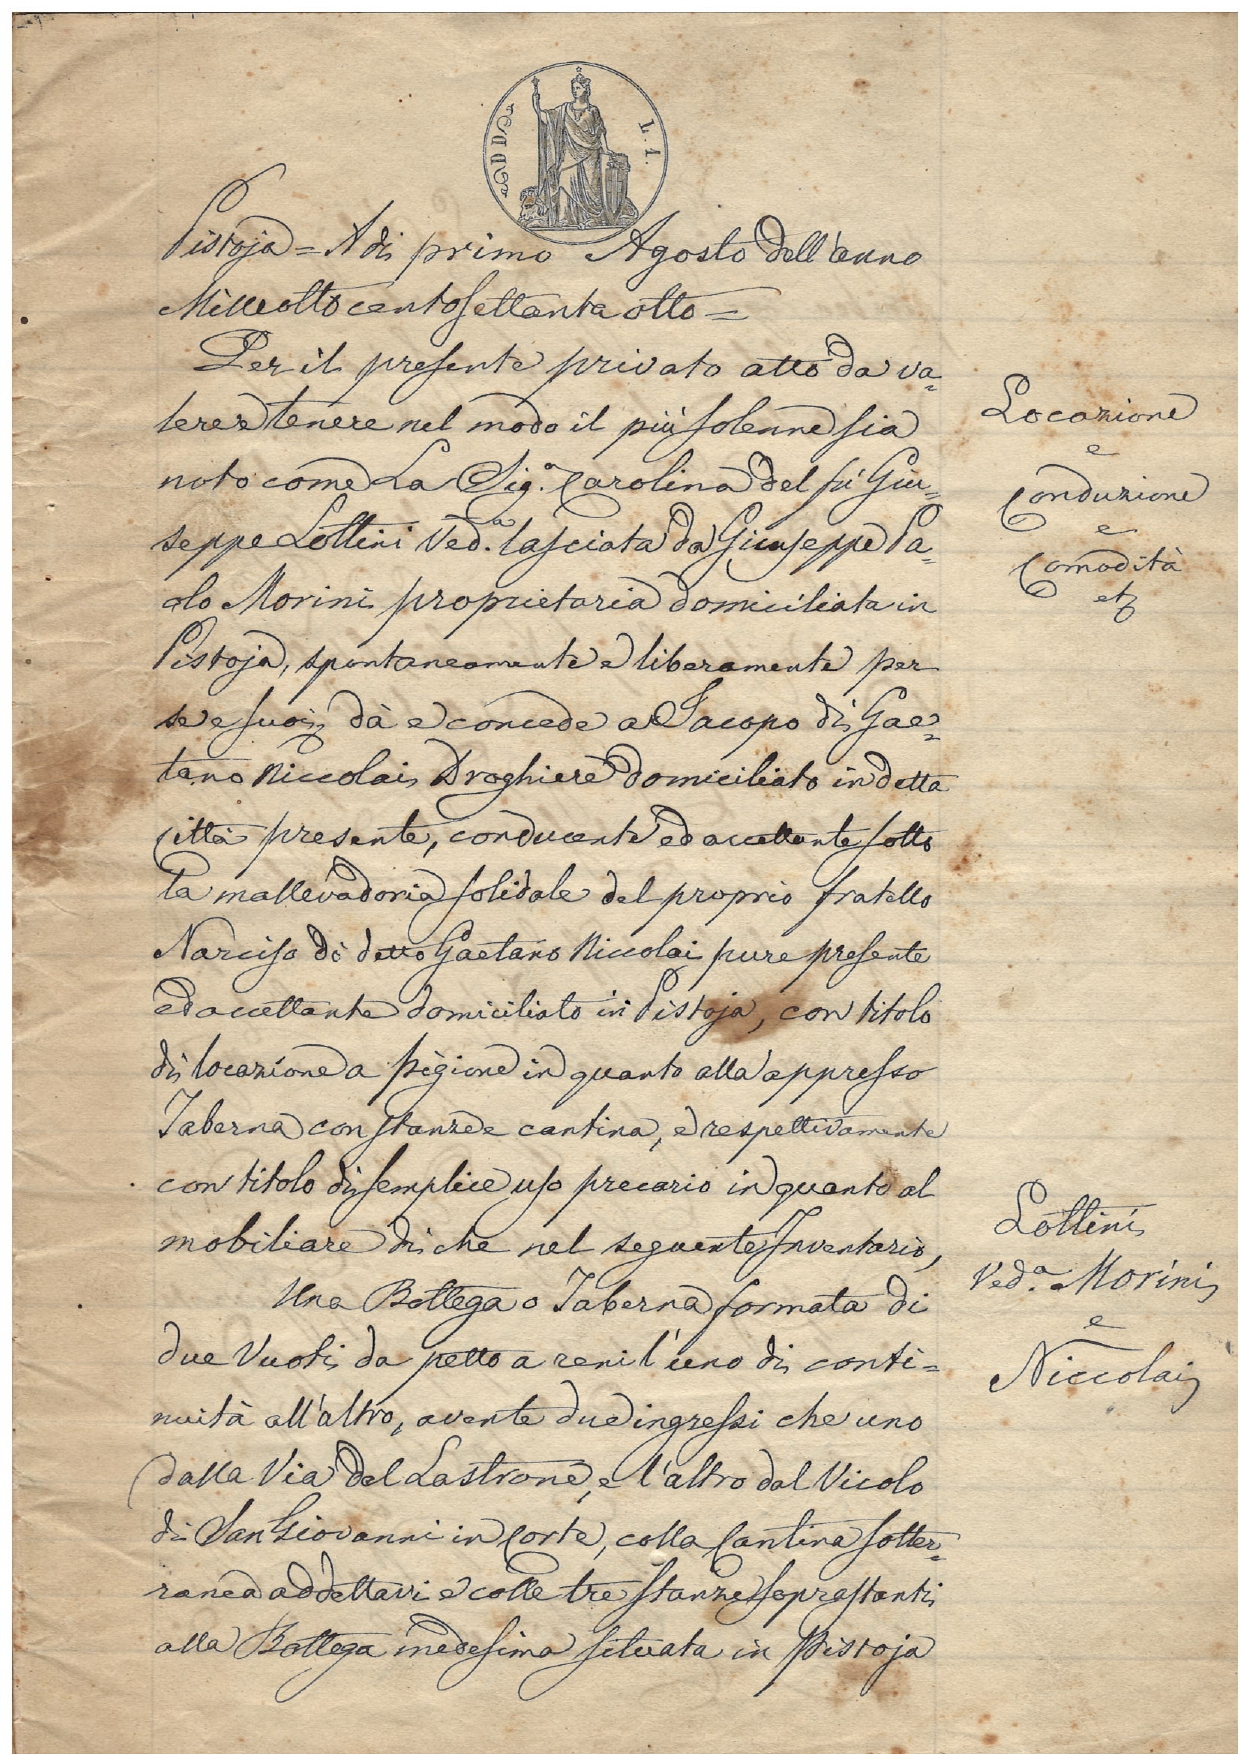 L. 1.
Pistoja = A dì primo Agosto dell'anno
Milleottocentosettantaotto =
Per il presente privato atto da va=
lere e tenere nel modo il più solenne sia
noto come La Sig.a Carolina del fù Giu=
seppe Lottini Ved.a lasciata da Giuseppe Pa=
olo Morini proprietaria domiciliata in
Pistoja, spontaneamente e liberamente per
se e suoi dà e concede a Jacopo di Gae=
tano Niccolai Droghiere domiciliato in detta
Città presente, conducente ed accettante sotto
la mallevadoria solidale del proprio fratello
Narciso di detto Gaetano Niccolai pure presente
ed accettante domiciliato in Pistoja, con titolo
di locazione a pigione in quanto alla appresso
Taberna con stanze e cantina, e respettivamente
con titolo di semplice uso precario in quanto al
mobiliare di che nel seguente Inventario,
Una Bottega o Taberna formata di
due Vuoti da petto a reni l'uno di conti=
nuità all'altro, avente due ingressi che uno
dalla Via del Lastrone, e l'altro dal Vicolo
di San Giovanni in Corte, colla Cantina sotter=
ranea addettavi e colle tre stanze soprastanti
alla Bottega medesima situata in Pistoja
Locazione
e
Conduzione
e
Comodità
etc
Lottini
Ved.a Morini
e
Niccolai